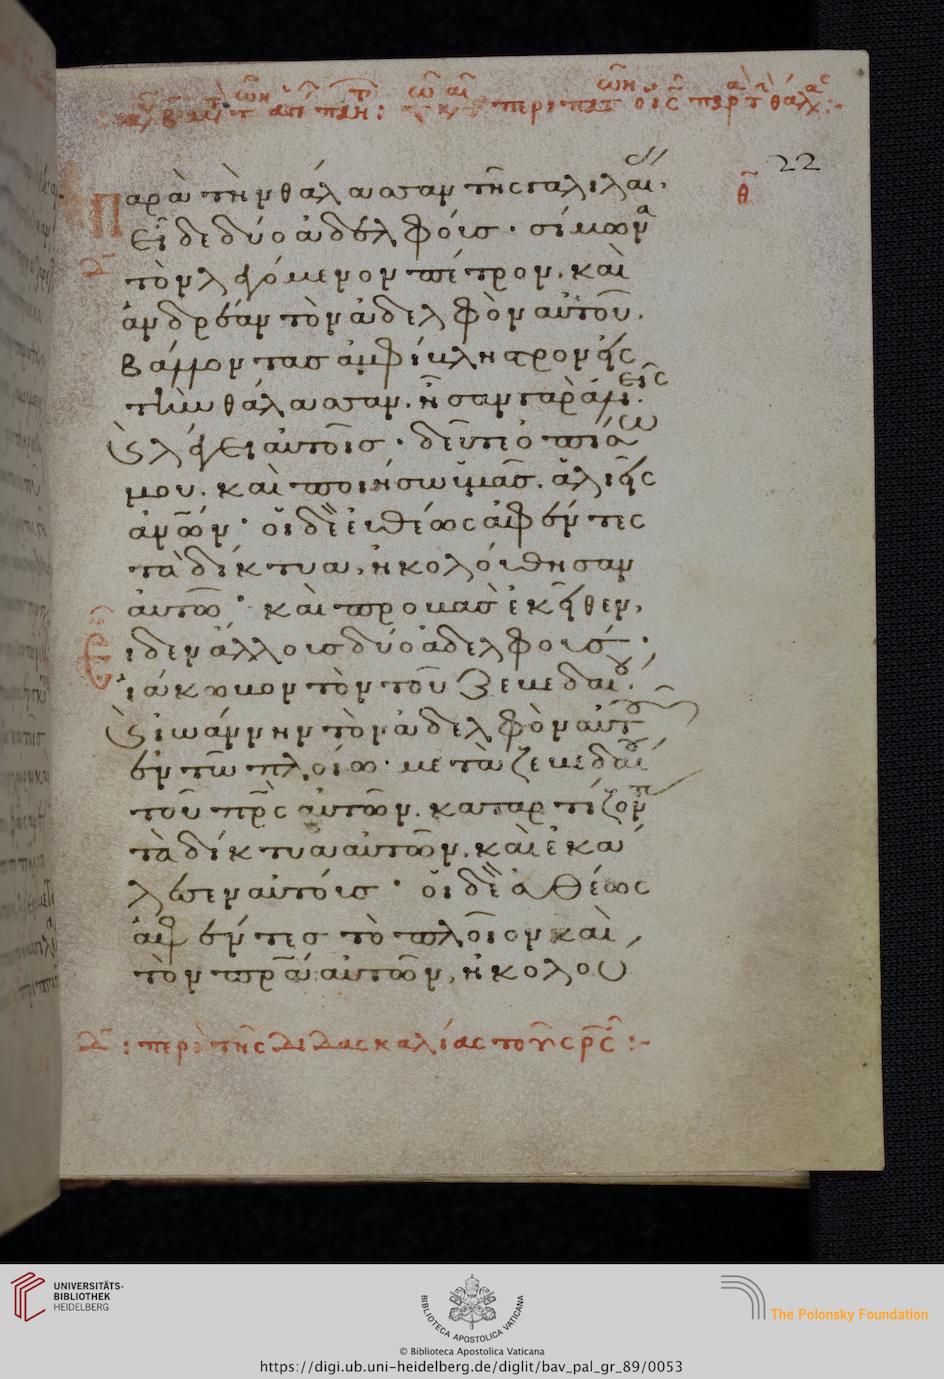 22
παρὰ τὴν θάλασσαν τῆς γαλιλαί,
εἶδε δύο ἀδελφοὺς· σίμωνα
τὸν λεγόμενον πέτρον, καὶ
ἀνδρέαν τὸν ἀδελφὸν αὐτοῦ.
βάλλοντας ἀμφίβληστρον εἰς
τὴν θάλασσαν. ἦσαν γὰρ ἁλιεῖς
λέγει αὐτοῖς· δεῦτε ὀπίσω
μου. καὶ ποιήσω ὑμᾶς. ἁλιεῖς
ἀνων· οἱ δὲ εὐθέως ἀφέντες
τὰ δίκτυα, ἠκολούθησαν
αὐτῶ· καὶ προβὰς ἐκεῖθεν,
εἶδεν ἄλλους δύο ἀδελφούς·
ἰάκωβον τὸν τοῦ ζεβεδαίου.
ἰωάννην τὸν ἀδελφὸν αὐτοῦ
ἐν τῶ πλοίω· μετὰ ζεβεδαίου
τοῦ πρς αὐτῶν. καταρτίζοντ
τὰ δίκτυα αὐτῶν. καὶ ἐκά
λεσεν αὐτούς· οἱ δὲ εὐθέως
ἀφέντες τὸ πλοῖον καὶ
τὸν πρα αὐτῶν, ἠκολου
περὶ τῆς διδασκαλίας τοῦ σρς
UNIVERSITÄTS-
BIBLIOTHEK
HEIDELBERG
BIBLIOTECA APOSTOLICA VATICANA
The Polonsky Foundation
© Biblioteca Apostolica Vaticana
https://digi.ub.uni-heidelberg.de/diglit/bav_pal_gr_89/0053